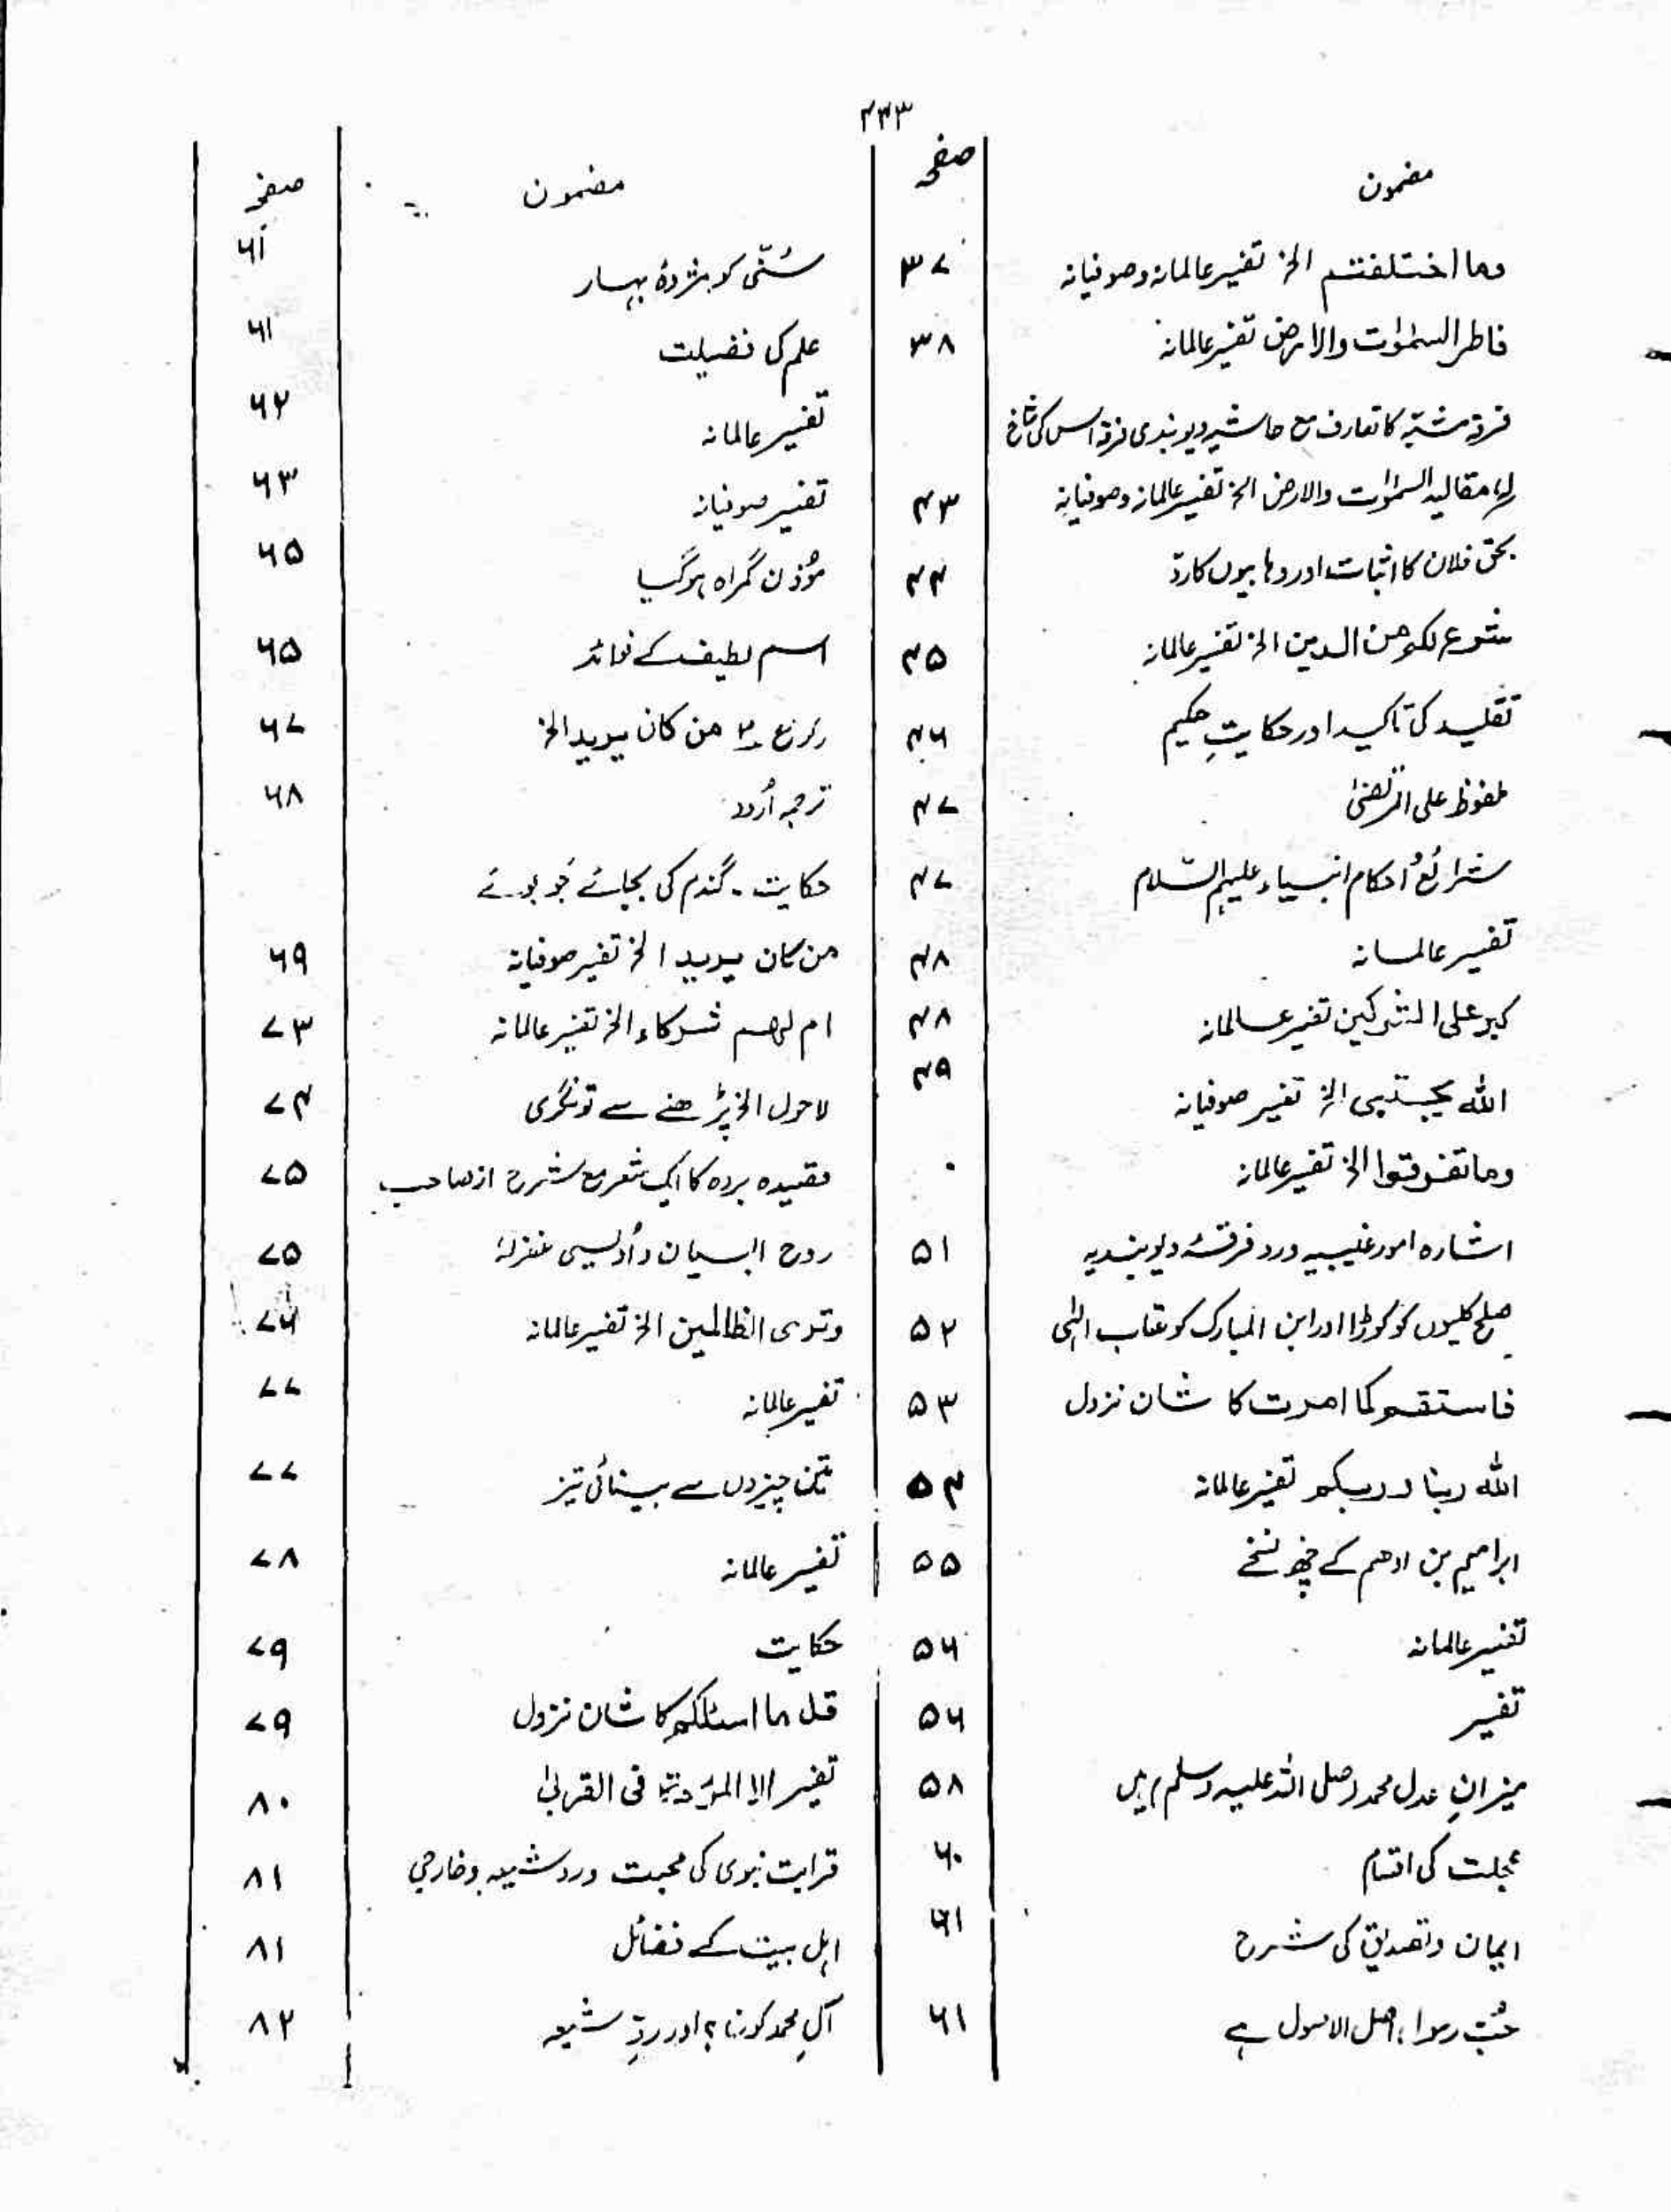 ۴۳۳
مضمون صفحہ
وما اختلفتم الخ تفسیر عالمانہ وصوفیانہ ۳۷
فاطر السمٰوٰت والارض تفسیر عالمانہ ۳۸
فرقہ مشبہ کا تعارف مع حاشیہ دیوبندی فرقہ اس کی شاخ
لہ مقالید السمٰوٰت والارض الخ تفسیر عالمانہ وصوفیانہ ۴۳
بحق فلان کا اثبات اور وہابیوں کا ردّ ۴۴
شرع لکم من الدین الخ تفسیر عالمانہ ۴۵
تقلید کی تاکید اور حکایتِ حکیم ۴۶
ملفوظ علی المرتضیٰ ۴۷
شرائع احکام انبیاء علیہم السّلام ۴۷
تفسیر عالمانہ ۴۸
کبر علی المشرکین تفسیر عالمانہ ۴۸
اللہ یجتبی الخ تفسیر صوفیانہ ۴۹
وما تفرقوا الخ تفسیر عالمانہ ۰
اشارہ امور غیبیہ ورد فرقۂ دیوبندیہ ۵۱
صلح کلیوں کو کوڑا اور ابن المبارک کو عتاب الٰہی ۵۲
فاستقم کما امرت کا شان نزول ۵۳
اللہ ربنا وربکم تفسیر عالمانہ ۵۴
ابراہیم بن ادھم کے چھ نسخے ۵۵
تفسیر عالمانہ ۵۶
تفسیر ۵۶
میزانِ عدل محمد (صلی اللہ علیہ وسلم) ہیں ۵۸
عجلت کی اقسام ۶۰
ایمان وتصدیق کی شرح ۶۱
حُبِّ رسول اصل الاصول ہے ۶۱
مضمون صفحہ
سُنّی کو مژدۂ بہار ۶۱
علم کی فضیلت ۶۱
تفسیر عالمانہ ۶۲
تفسیر صوفیانہ ۶۳
مؤذن گمراہ ہوگیا ۶۵
اسم لطیف کے فوائد ۶۵
رکوع ۳ من کان یرید الخ ۶۷
ترجمہ اُردو ۶۸
حکایت ۔ گندم کی بجائے جَو بوئے
من کان یرید الخ تفسیر صوفیانہ ۶۹
ام لہم شرکاء الخ تفسیر عالمانہ ۷۳
لاحول الخ پڑھنے سے تونگری ۷۴
قصیدہ بردہ کا ایک شعر مع شرح از صاحب ۷۵
روح البیان و اُویسی غفرلہٗ ۷۵
وتری الظالمین الخ تفسیر عالمانہ ۷۶
تفسیر عالمانہ ۷۷
تین چیزوں سے بینائی تیز ۷۷
تفسیر عالمانہ ۷۸
حکایت ۷۹
قل ما اسئلکم کا شان نزول ۷۹
تفسیر الا المودۃ فی القربیٰ ۸۰
قرابت نبوی کی محبت ورد شیعہ وخارجی ۸۱
اہل بیت کے فضائل ۸۱
آلِ محمد کون؟ اور ردِّ شیعہ ۸۲